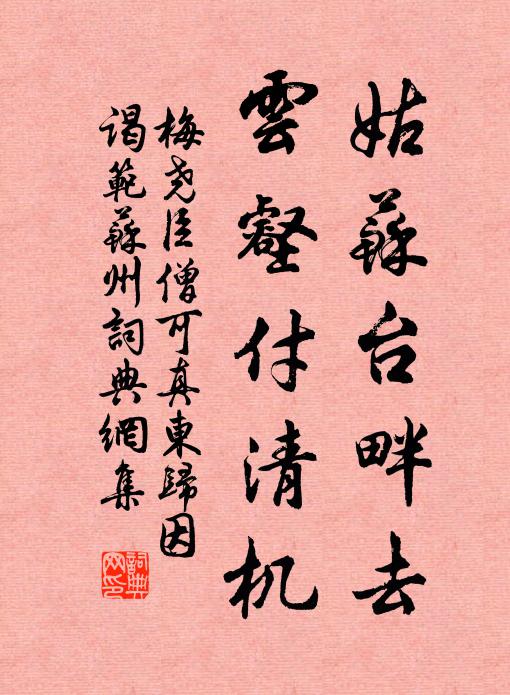 姑蘇台畔去
雲壑付清机
梅尧臣僧可真東歸因
谒範蘇州詞典網集
詞典网印